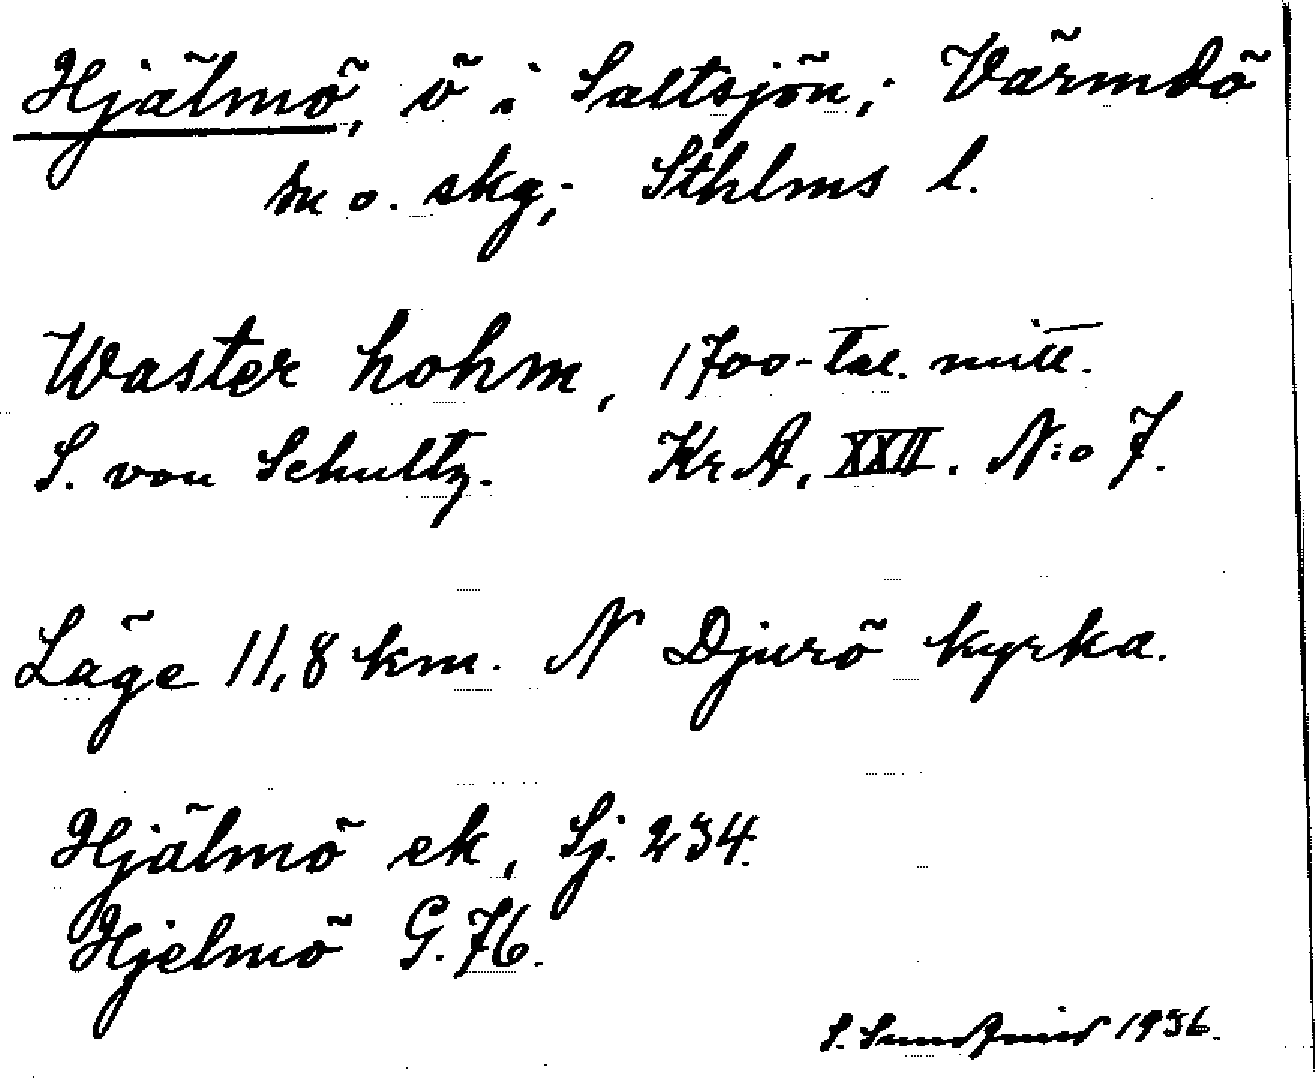 Hjälmö, ö i Saltsjön; Värmdö
sn o. skg; Sthlms l.
Waster hohm, 1700-tal. mitt.
S. von Schultz. Kr A. XXII. N:o 7.
Läge 11,8 km. N Djurö kyrka.
Hjälmö ek, Sj. 234.
Hjelmö G. 76.
S. 1936.